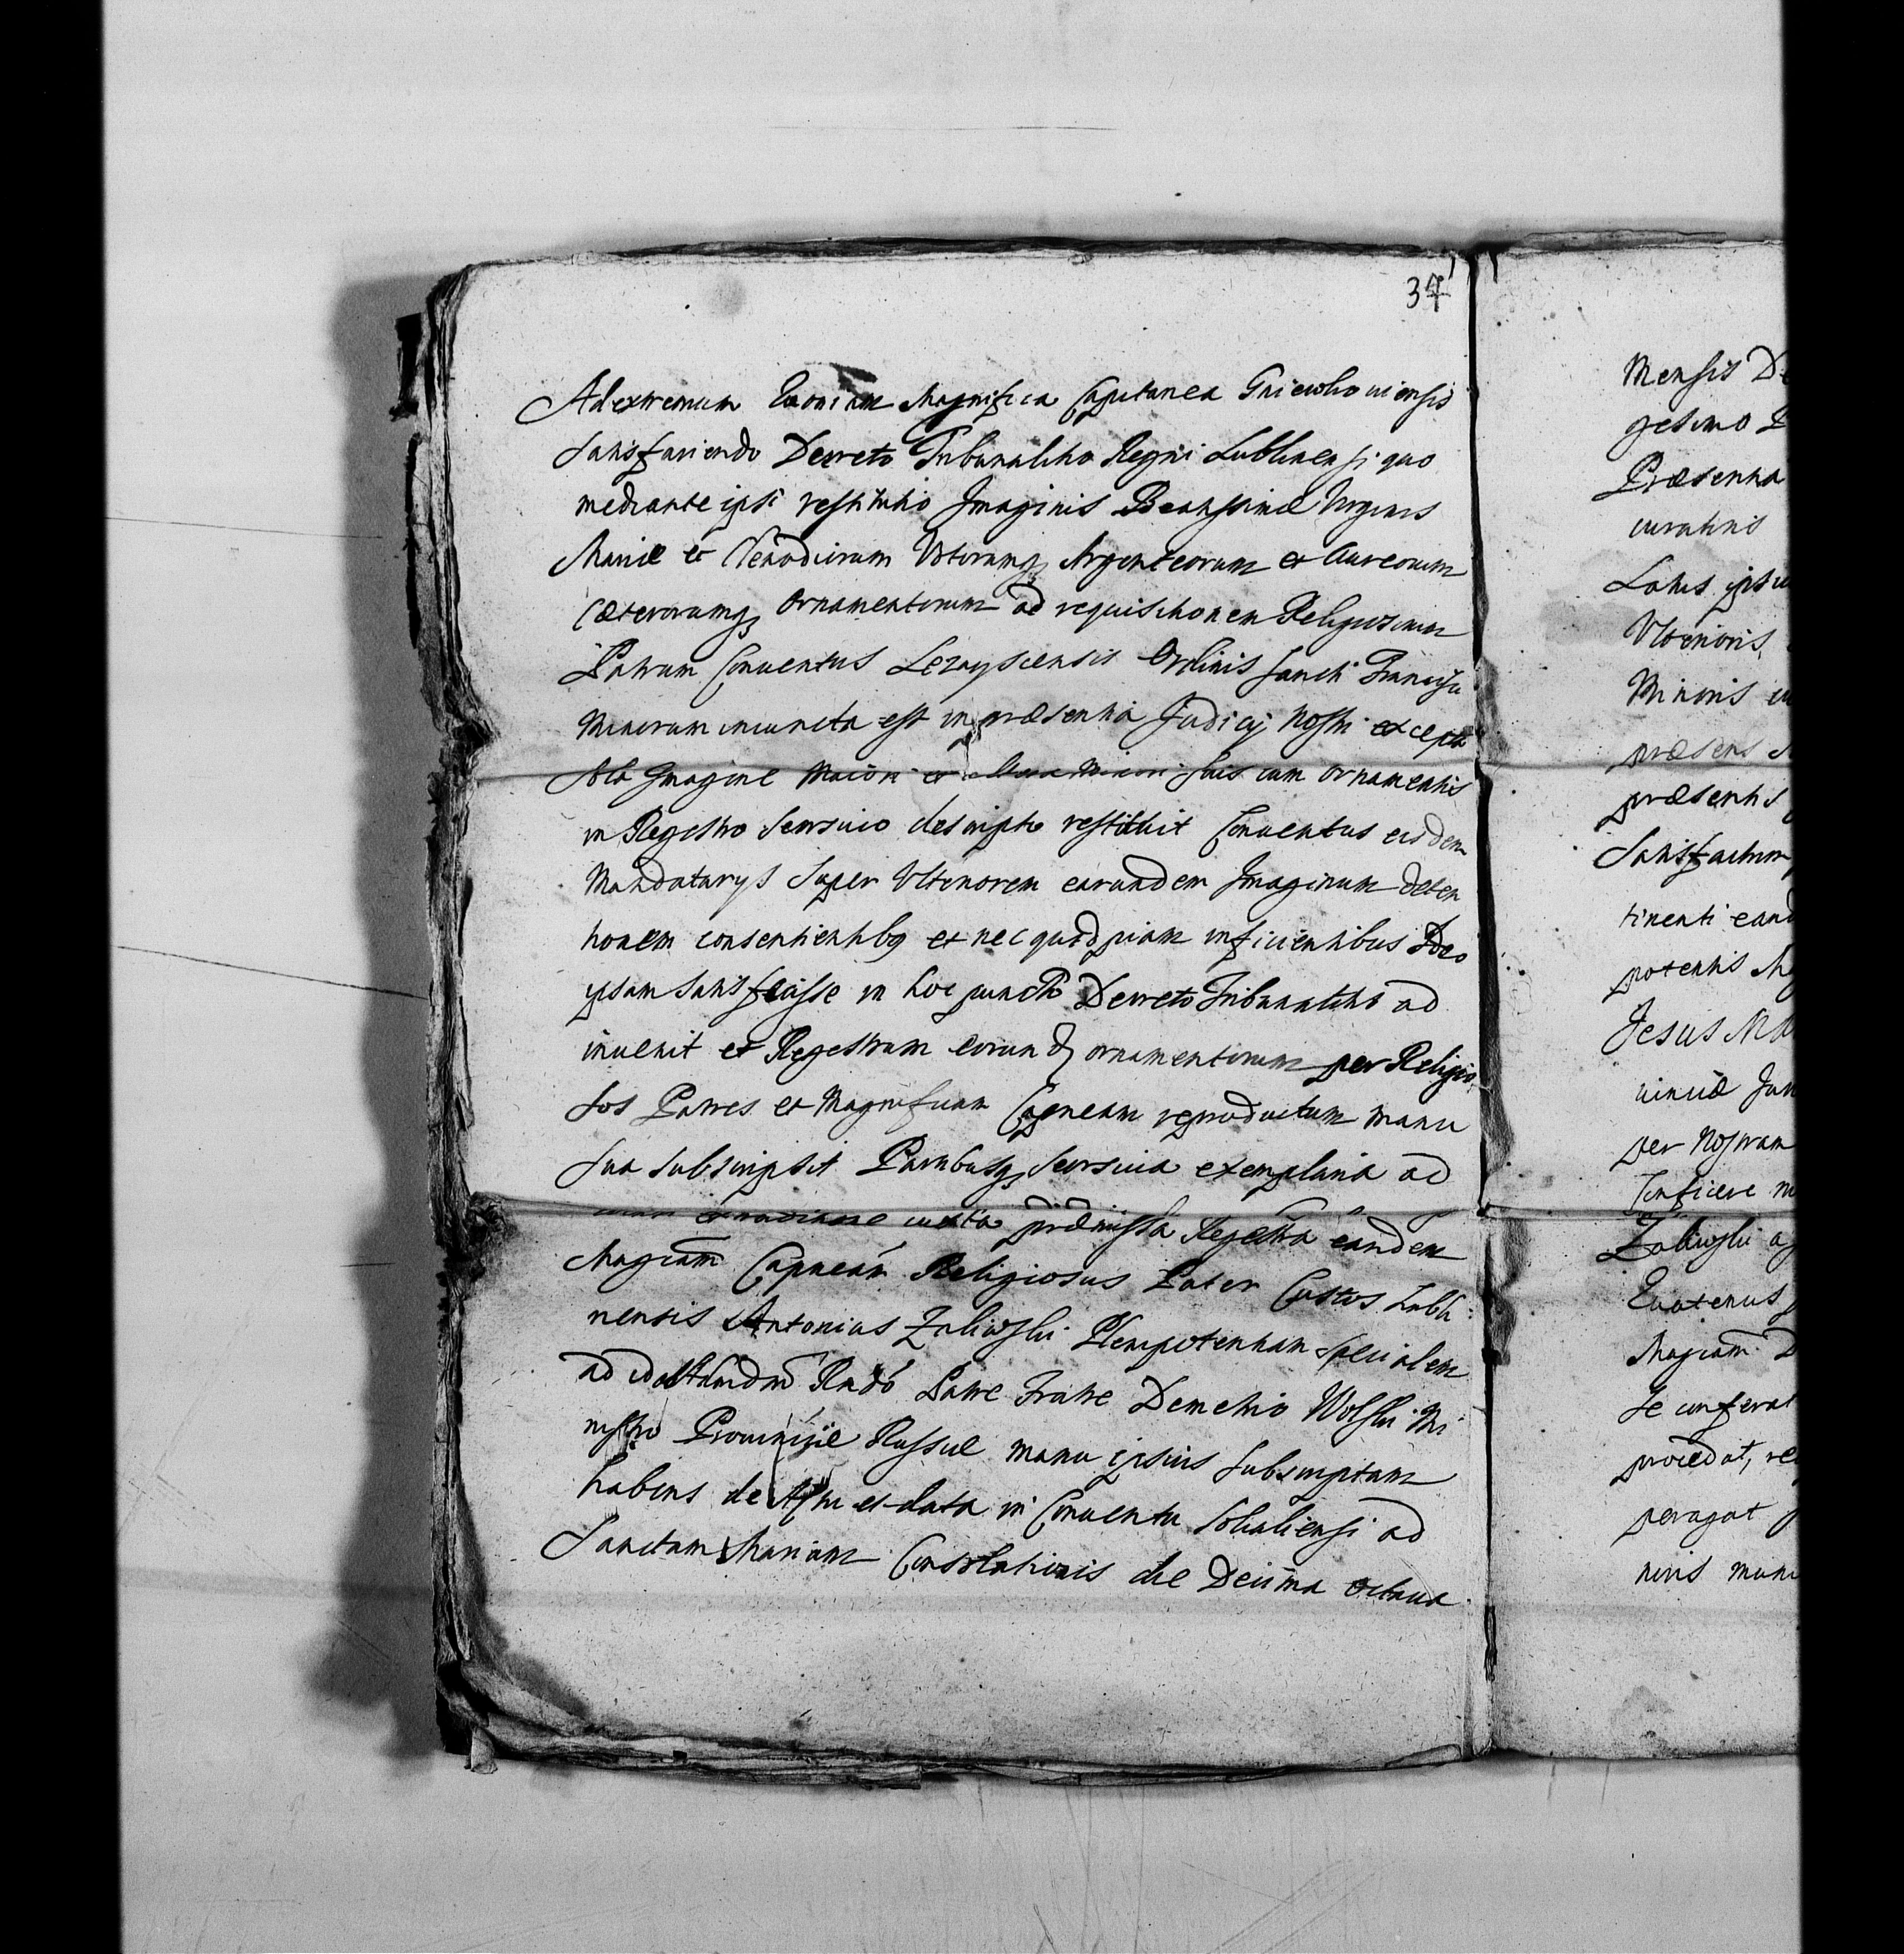 37
Ad extremum Quoniam Magnifica Capitanea Gniewkoviensis
Satisfaciendo Decreto Tribunalitio Regni Lublinensi quo
mediante ipsi restitutio Imaginis Beatissimæ Virginis
Mariæ et Clenodiorum Votorumq Argenteorum et Aureorum
Cæterorumq Ornamentorum ad requisitionem Religiosorum
Patrum Conuentus Lezayscensis Ordinis Sancti Francisci
Minorum iniuncta est in præsentia Judicij Nostri excepta
sola Imagine Maiori et Minori suis cum ornamentis
in Regestro seorsiuo descripto restituit Conuentus eiusdem
Mandatarys super Ulteriorem earundem Imaginum deten
tionem consentientibg et nec quidpiam inficientibus Ideo
ipsam satisfecisse in hoc puncto Decreto Tribunalitio ad
inuenit et Regestrum eorund ornamentorum per Religio
sos Patres et Magnificam Capneam reproductum manu
sua subscripsit Partibusq seorsiua exemplaria ad
iuxta præmissa Regestra eandem
Magcam Capneam Religiosus Pater Custos Lubli
nensis Antonius Zaliwski Plenipotentiam specialem
ad id Rndo Patre Fratre Demetrio Wolski Mi
nistro Prouinciæ Russiæ manu ipsius subscriptam
habens de Actu et data in Conuentu Sokaliensi ad
Sanctam Mariam Consolationis die Decima octaua
Mensis
gesimo
Præsentia
Latus
Ulterioris
Minoris
præsens
præsentis
tinenti
potentis
Jesus
per Nostram
Conficere
Zaliwski
Quatenus
Magcam
se conferat
procedat,
peragat